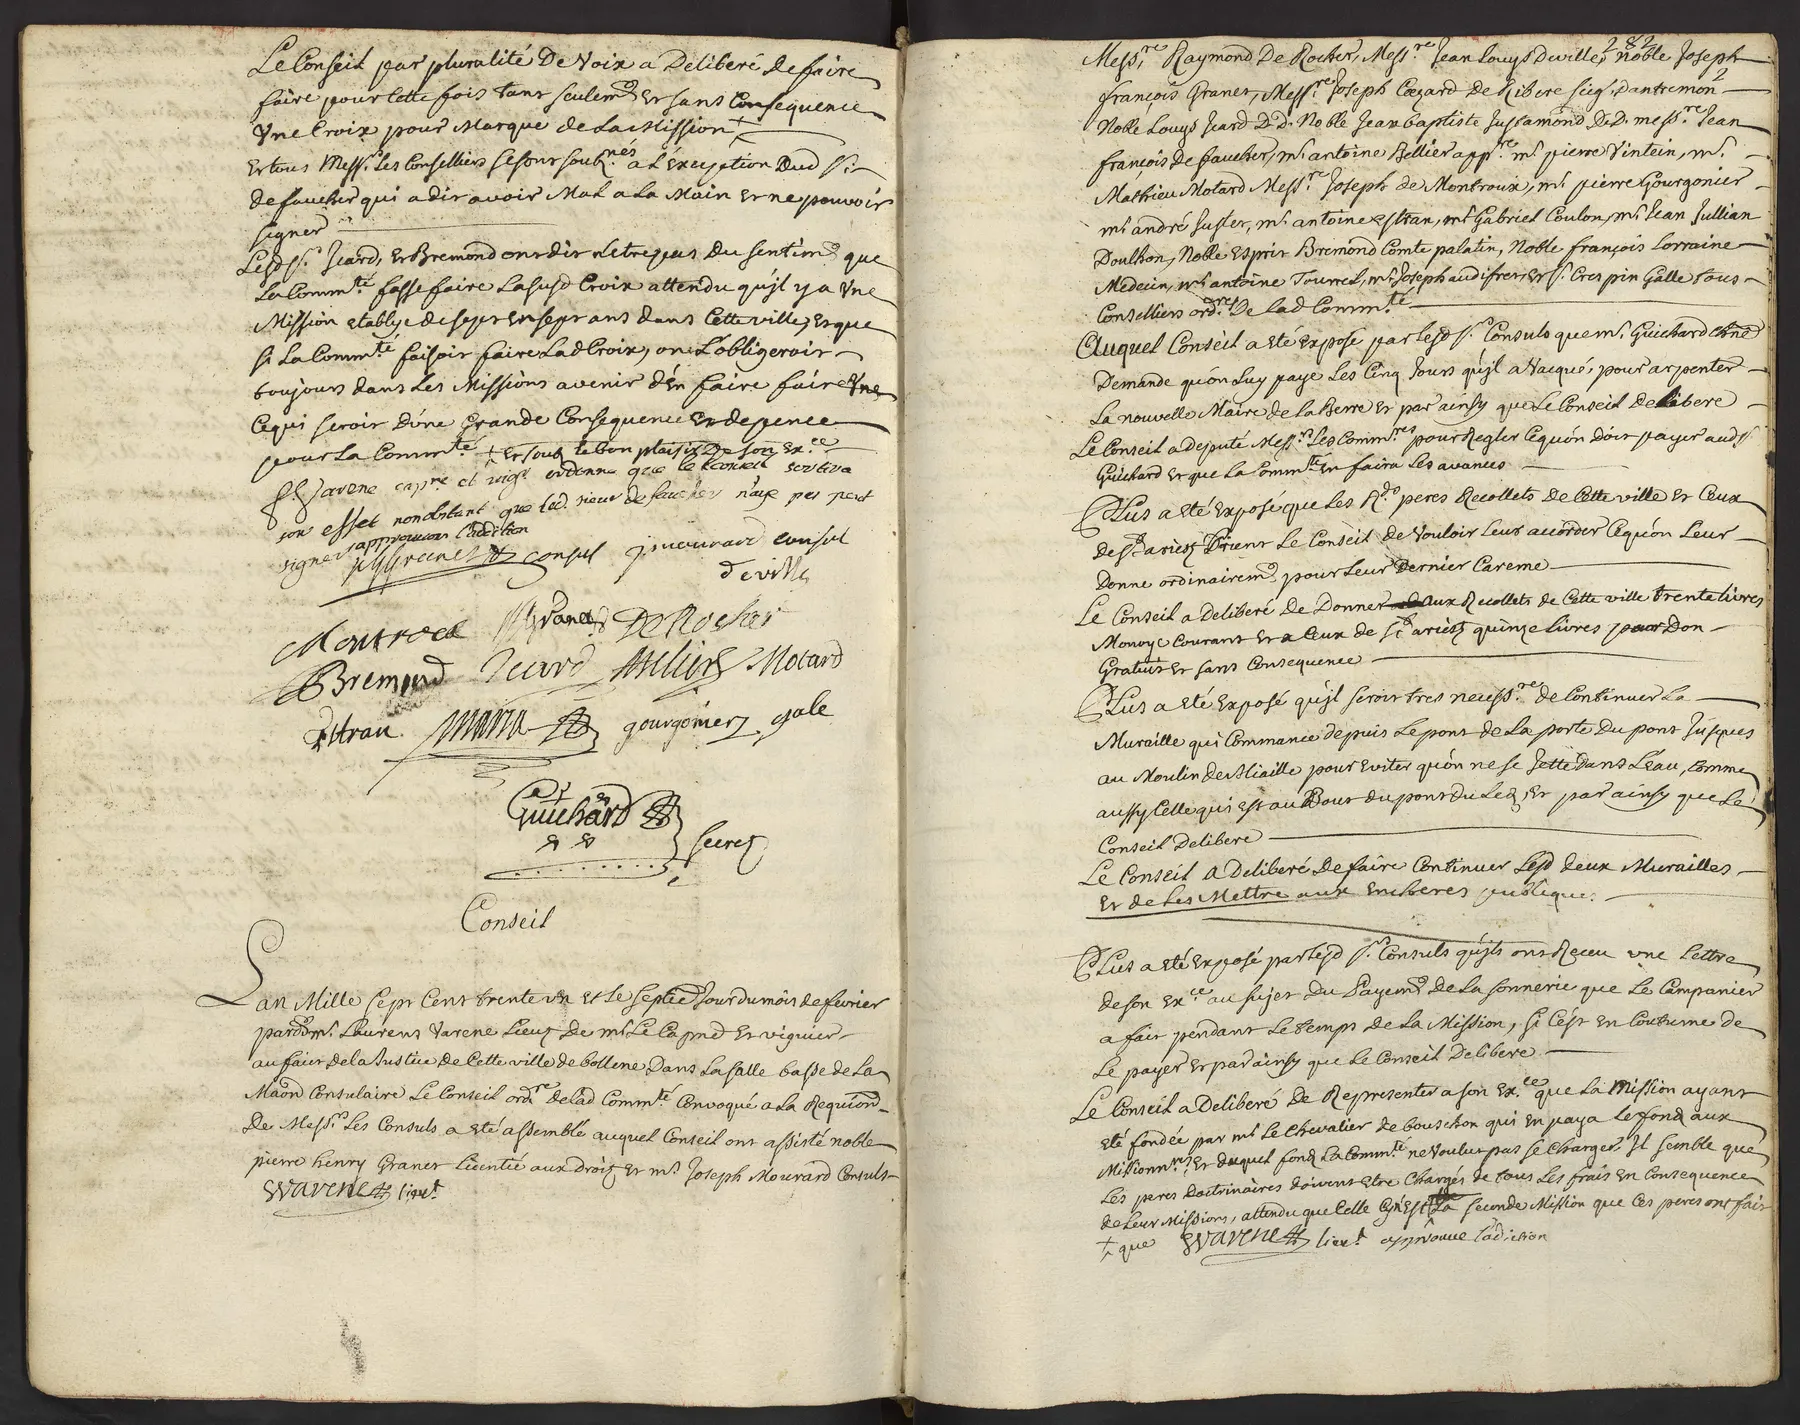 Le Conseil par pluralité De Voix a Deliberé de faire
faire pour Cette fois tant seulemt Et sans Consequence
Une Croix pour Marque de La Mission +
Et tous Messrs Les Conselliers se sont soubnés a L'Exception Dud Sr
de faucher qui a dit avoir Mal a La Main Et ne pouvoir
signer
Lesd Srs Icard, Et Bremond ont dit n'etre pas Du sentimt que
La Commté fasse faire La susd Croix attendu qu'jl y a Vne
Mission etablye de sept En sept ans dans Cette ville, Et que
si La Commté faisoit faire Lad Croix, on L'obligeroit
toujours dans Les Missions avenir d'En faire faire Vne
Ce qui seroit d'une Grande Consequence Et depence
pour La Commté + Et sous le bon plaisir De son Exce
Varene capne et vigr ordonne que le conseil sortira
son effet nonobstant que led. sieur de faucher n'aye pas peut
signer approuvons l'addition
Granet consul j mourard consul
deville
Montroux Granet De Rocher
Bremond Icard Motard
Estran gourgonier gale
Guichard
Secret
Conseil
L'an Mille sept Cent trente un Et Le septie Jour du mois de fevrier
pardt mr Laurens Varene Lieut De mr Le Capne Et viguier
au fait de la Justice de Cette ville de bollene Dans La salle basse de La
Maon Consulaire Le Conseil ordre de lad Commté Convoqué a La Requion
De Messrs Les Consuls a eté assemblé auquel Conseil ont assisté noble
pierre henry Granet Licentié aux droits Et mr Joseph Mourard Consuls
Varene lieut
282
Messre Raymond De Rocher, Messre Jean Louys Deville, Noble Joseph
2
françois Granet, Messre Joseph Cezard De Ribere Seigr d'antremon
Noble Louys Icard D.D. Noble Jean baptiste Jussamond D.D. messre Jean
françois de faucher, mr antoine Bellier appre mr pierre Vintein, mr
Mathieu Motard Messre Joseph de Montroux, mr pierre Gourgonier
mr andré Juster, mr antoine estran, mr Gabriel Coulon, mr Jean Jullian
Doulhon, Noble Esprit Bremond Comte palatin, Noble françois Lorraine
Medecin, mr antoine Tourrel, mr Joseph audifret, Et Sr Crespin Galle tous
Conselliers ordres De lad Commté
Auquel Conseil a eté Exposé par Lesd Srs Consuls que mr Guichard
Demande qu'on Luy paye Les Cinq Jours qu'jl a Vacqué, pour arpenter
La nouvelle Maire de La Berre Et par ainsy que Le Conseil Delibere
Le Conseil a deputé Messrs Les Commres pour Regler Ce qu'on doit payer aud Sr
Guichard Et que La Commté En faira Les avances
Plus a eté Exposé que Les Rds peres Recollets De Cette ville Et Ceux
de St ariest Prient Le Conseil de Vouloir Leur accorder Ce qu'on Leur
Donne ordinairemt pour Leur Dernier Careme
Le Conseil a Deliberé De Donner aux Recollets de Cette ville trente livres
Monoye Courant Et a Ceux de St ariest quinze Livres pour Don
Gratuit Et sans Consequence
Plus a eté Exposé qu'jl seroit tres necessre de Continuer La
Muraille qui Commance depuis Le pont de La porte Du pont Jusques
au Moulin de Miaille pour Eviter qu'on ne se Jette Dans L'eau, Comme
aussy Celle qui Est au Bout du pont du Lez, Et par ainsy que Le
Conseil Delibere
Le Conseil a Deliberé De faire Continuer Lesd deux Murailles
Et de Les Mettre aux Encheres publiques
Plus a eté Exposé par Lesd Srs Consuls qu'jls ont Receu une Lettre
de son Exce au sujet Du Payemt De La sonnerie que Le Campanier
a fait pendant Le temps de La Mission, si C'est En Coutume de
Le payer Et par ainsy que Le Conseil Delibere
Le Conseil a Deliberé De Representer a son Exce que La Mission ayant
eté fondée par mr Le Chevalier de bouschon qui En paya Le fond aux
Missionnres, Et duquel fond La Commté ne Voulut pas se Charger. Jl semble que
Les peres Doctrinaires doivent Etre Chargés de tous Les frais En Consequence
de Leur Missions, attendu que Celle Cy n'Est La seconde Mission que Ces peres ont fait
+ que Varene lieut approuve l'adiction